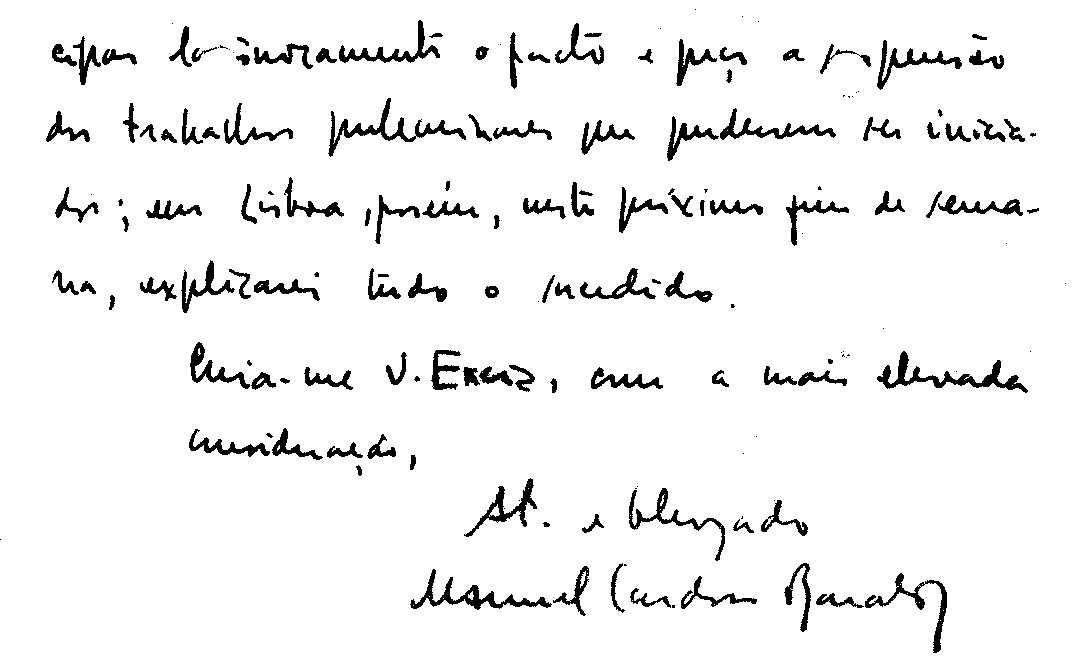 cipar lo sinceramente o facto e peço a suspensão
dos trabalhos preliminares que pudessem ser inicia-
dos; em Lisboa, porém, neste próximo fim de sema-
na, explicarei tudo o sucedido.
Creia-me V. Excia, com a mais elevada
consideração,
At. e obrigado
Manuel Cardoso